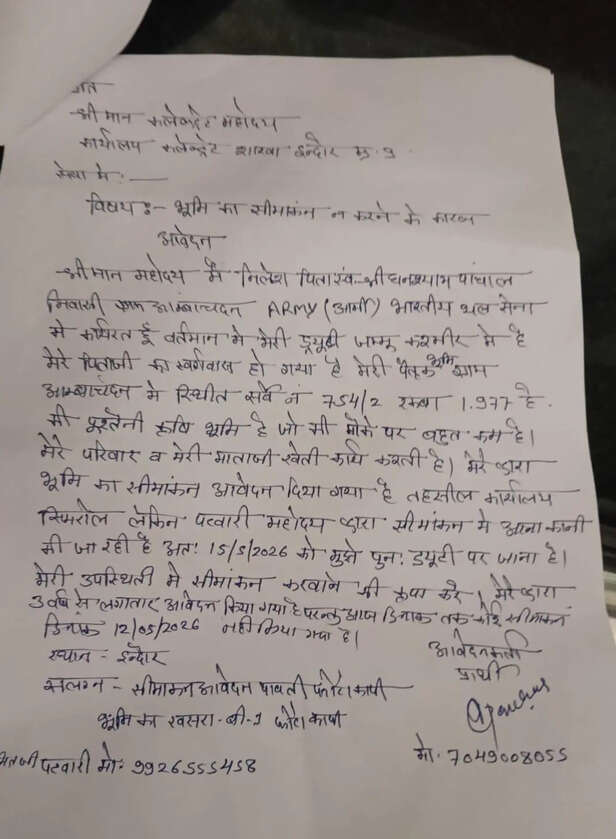 प्रति
श्रीमान कलेक्ट्रेट महोदय
कार्यालय कलेक्ट्रेट शाखा इन्दौर म.प्र
सेवा मे:—
विषय:— भूमि का सीमांकन न करने के कारण
आवेदन
श्रीमान महोदय मै निलेश पिता स्व. श्री घनश्याम पांचाल
निवासी ग्राम आम्बाचंदन ARMY (आर्मी) भारतीय थल सेना
मे कार्यरत हूँ वर्तमान मे मेरी ड्यूटी जम्मु कश्मीर मे है
मेरे पिताजी का स्वर्गवास हो गया है मेरी पैतृक भूमि ग्राम
आम्बाचंदन मे स्थीत सर्वे नं 754/2 रकबा 1.977 है.
की पुश्तेनी कृषि भूमि है जो की मौके पर बहुत कम है।
मेरे परिवार व मेरी माताजी खेती कार्य करती है। मेरे द्वारा
भूमि का सीमांकन आवेदन दिया गया है तहसील कार्यालय
सिमरोल लेकिन पटवारी महोदय द्वारा सीमांकन मे आना कानी
की जा रही है अत: 15/5/2026 को मुझे पुन: ड्यूटी पर जाना है।
मेरी उपस्थिती मे सीमांकन करवाने की कृपा करे। मेरे द्वारा
3 वर्ष से लगातार आवेदन किया गया है परन्तु आज दिनांक तक कोई सीमांकन
दिनांक 12/05/2026 नही किया गया है।
स्थान - इन्दौर
आवेदनकर्ता
प्रार्थी
सलग्न - सीमांकन आवेदन पावती फोटो कापी
भूमि का खसरा-बी-1 फोटो कापी
मो. 7049008055
पटवारी मो: 9926555458